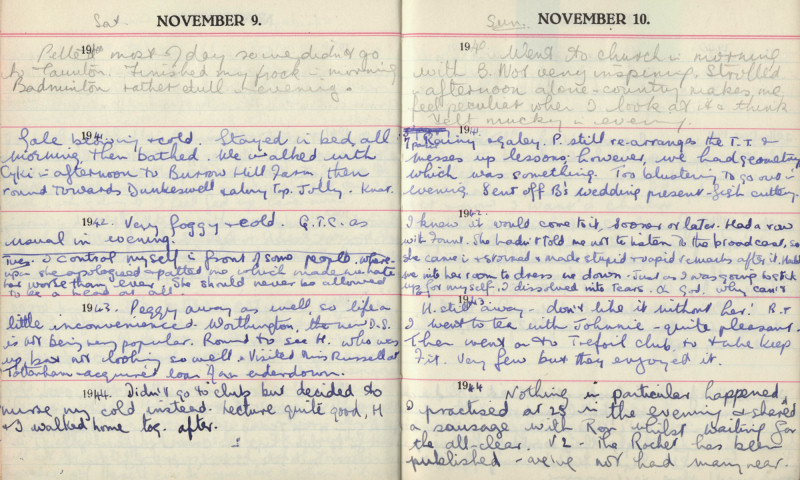 Sat.
NOVEMBER 9.
1940
Pelted most of day so we didn't go
to Taunton. Finished my frock - morning
Badminton rather dull - evening.
1941
Gale blowing & cold. Stayed in bed all
morning, then bathed. We walked with
- afternoon to Burrow Hill Farm, then
round towards Dunkeswell Jolly.
1942. Very foggy & cold. G.T.C. as
usual in evening.
Tues. I control myself in front of some people. where-
upon she apologised & patted me which made me hate
her worse than ever. She should never be allowed
to be a head at all.
1943. Peggy away as well so life a
little inconvenienced. Worthington, the new D.S.
is not being very popular. Round to see H. who was
up but not looking so well. Visited Miss Russell at
Tottenham - acquired loan of an eiderdown.
1944. Didn't go to club but decided to
nurse my cold instead. Lecture quite good, H
& I walked home tog. after.
Sun.
NOVEMBER 10.
1940
Went to church - morning
with B. Not very inspiring. Strolled
- afternoon alone - country makes me
feel peculiar when I look at it & think
Felt mucky - evening.
1941
Rainy & galey. P. still re-arranges the T.T. &
messes up lessons; however, we had geometry
which was something. Too blustering to go out -
evening. Sent off B's wedding present - fish cutlery.
1942
I knew it would come to it, sooner or later. Had a row
with Fount. She hadn't told me not to listen to the broadcast, so
she came in & stormed & made stupid & vapid remarks after it.
me into her room to dress me down. Just as I was going to stick
up for myself, I dissolved into tears. O God, why can't
1943.
H. still away - don't like it without her! R.T
I went to tea with Johnnie - quite pleasant.
Then went on to Trefoil club to take Keep
Fit. Very few but they enjoyed it.
1944
Nothing in particular happened,
I practised at 28 in the evening & shared
a sausage with Ron whilst waiting for
the all-clear. V2 - The Rocket has been
published - we've not had many near.